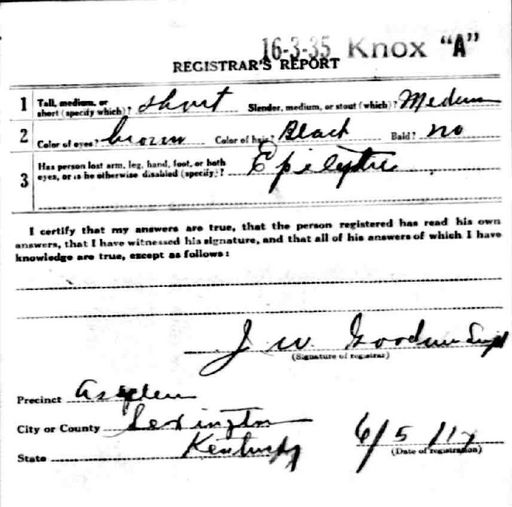 16-3-35 Knox "A"
REGISTRAR'S REPORT
1 Tall, medium, or short (specify which)? Short Slender, medium, or stout (which)? Medium
2 Color of eyes? brown Color of hair? Black Bald? no
3 Has person lost arm, leg, hand, foot, or both eyes, or is he otherwise disabled (specify)? Epileptic
I certify that my answers are true, that the person registered has read his own
answers, that I have witnessed his signature, and that all of his answers of which I have
knowledge are true, except as follows:
J W Supt
(Signature of registrar)
Precinct
City or County Lexington
State Kentucky 6/5/17
(Date of registration)